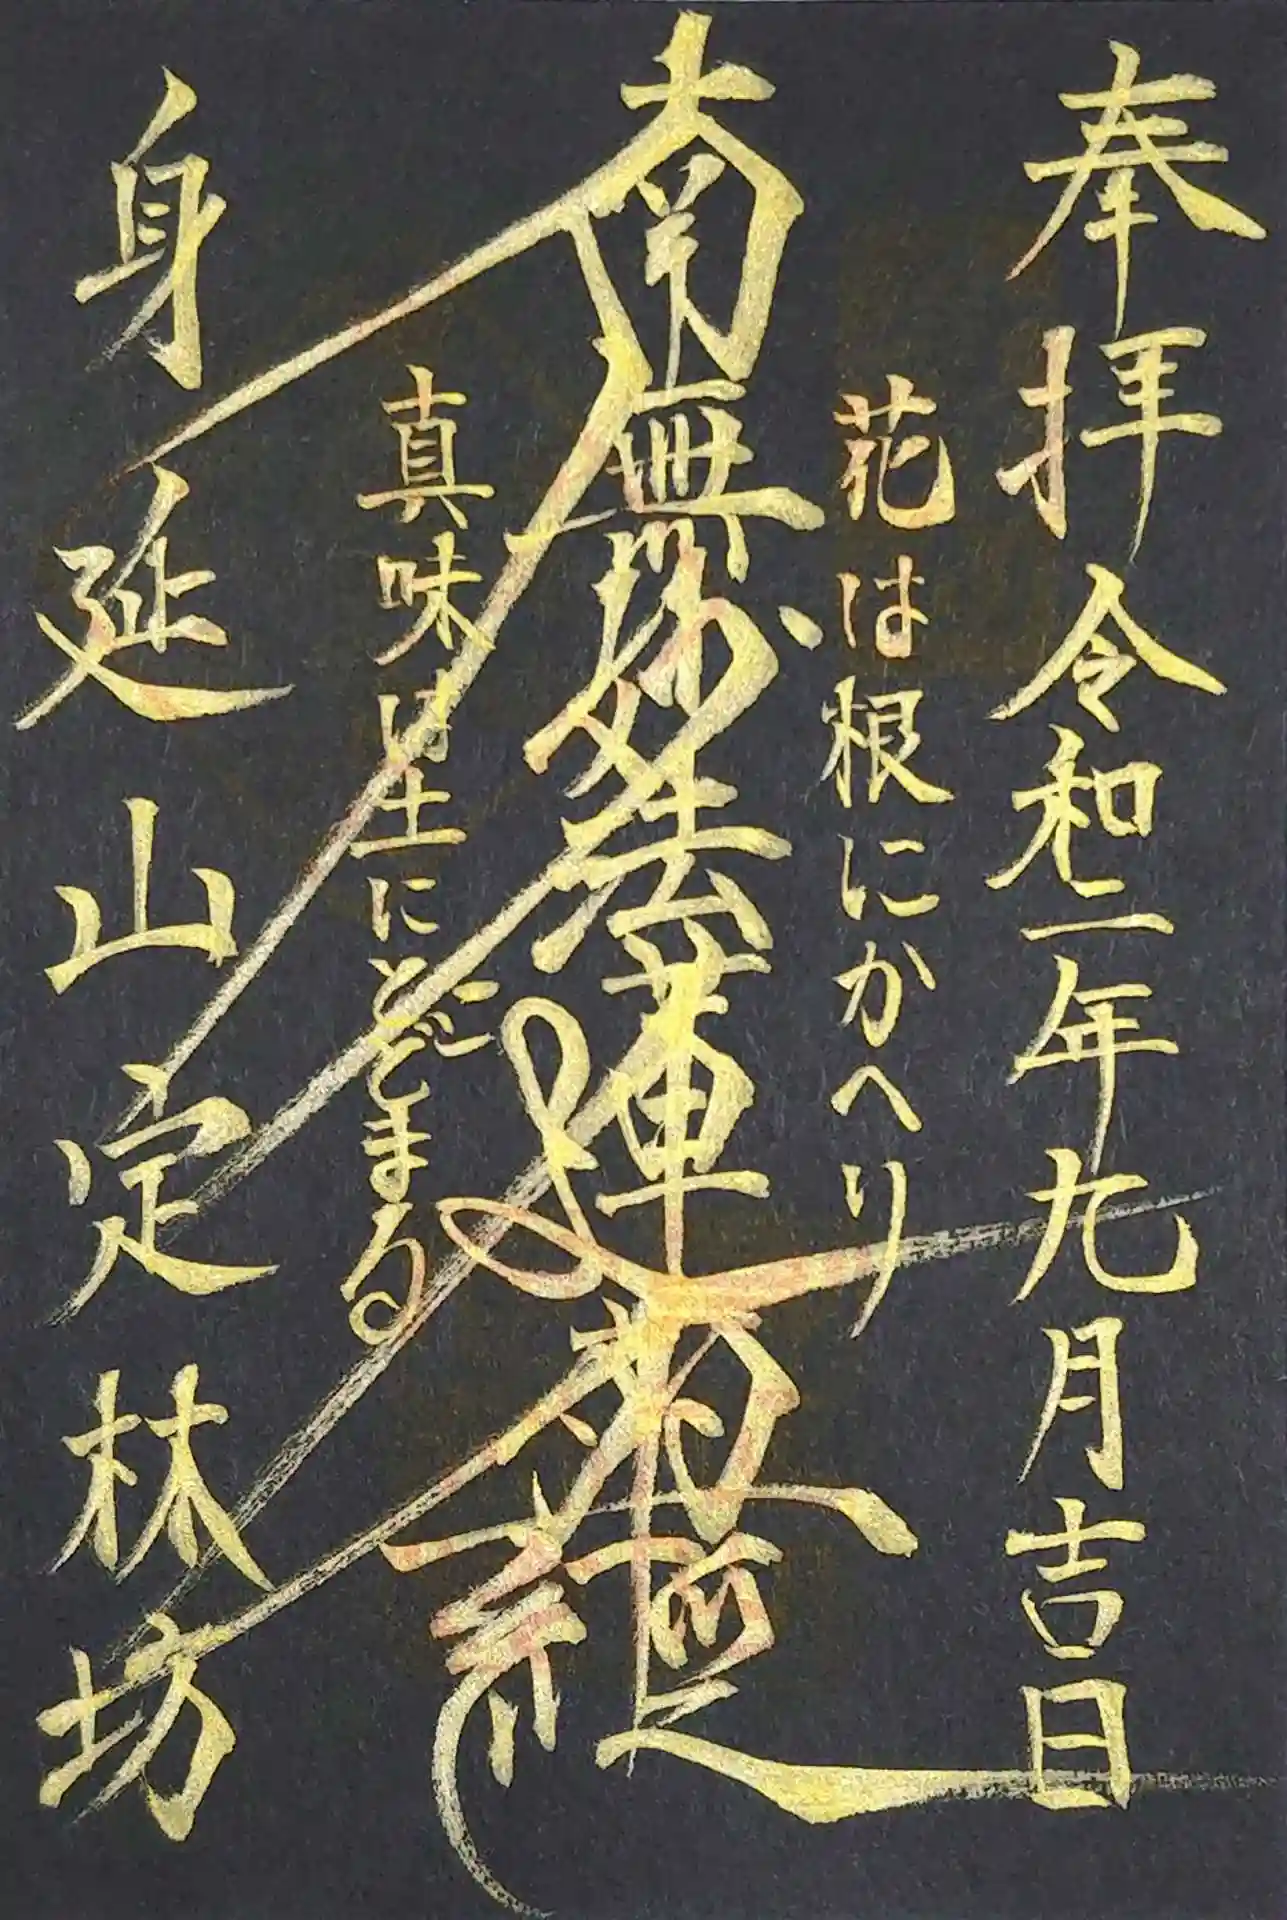 奉拝 令和二年九月吉日
花は根にかへり
南無妙法蓮華經
真味は土にとどまる
身延山定林坊